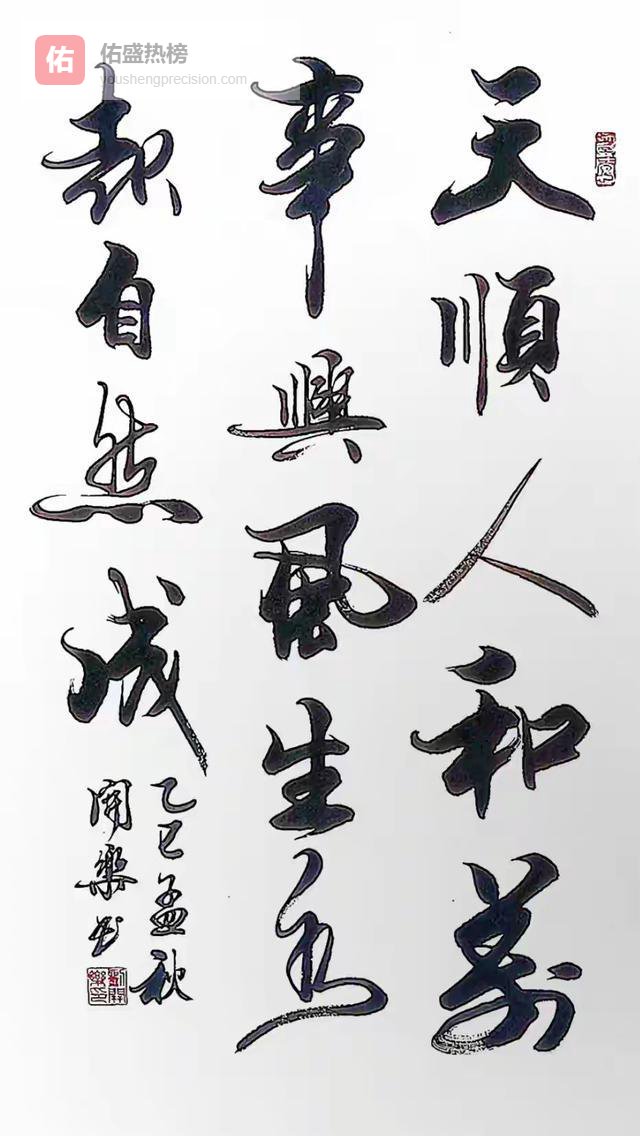 佑
佑盛热榜
youshengprecision.com
天順人和萬
事興風生水
起自然成
乙巳孟秋
開樂书
劉開樂印